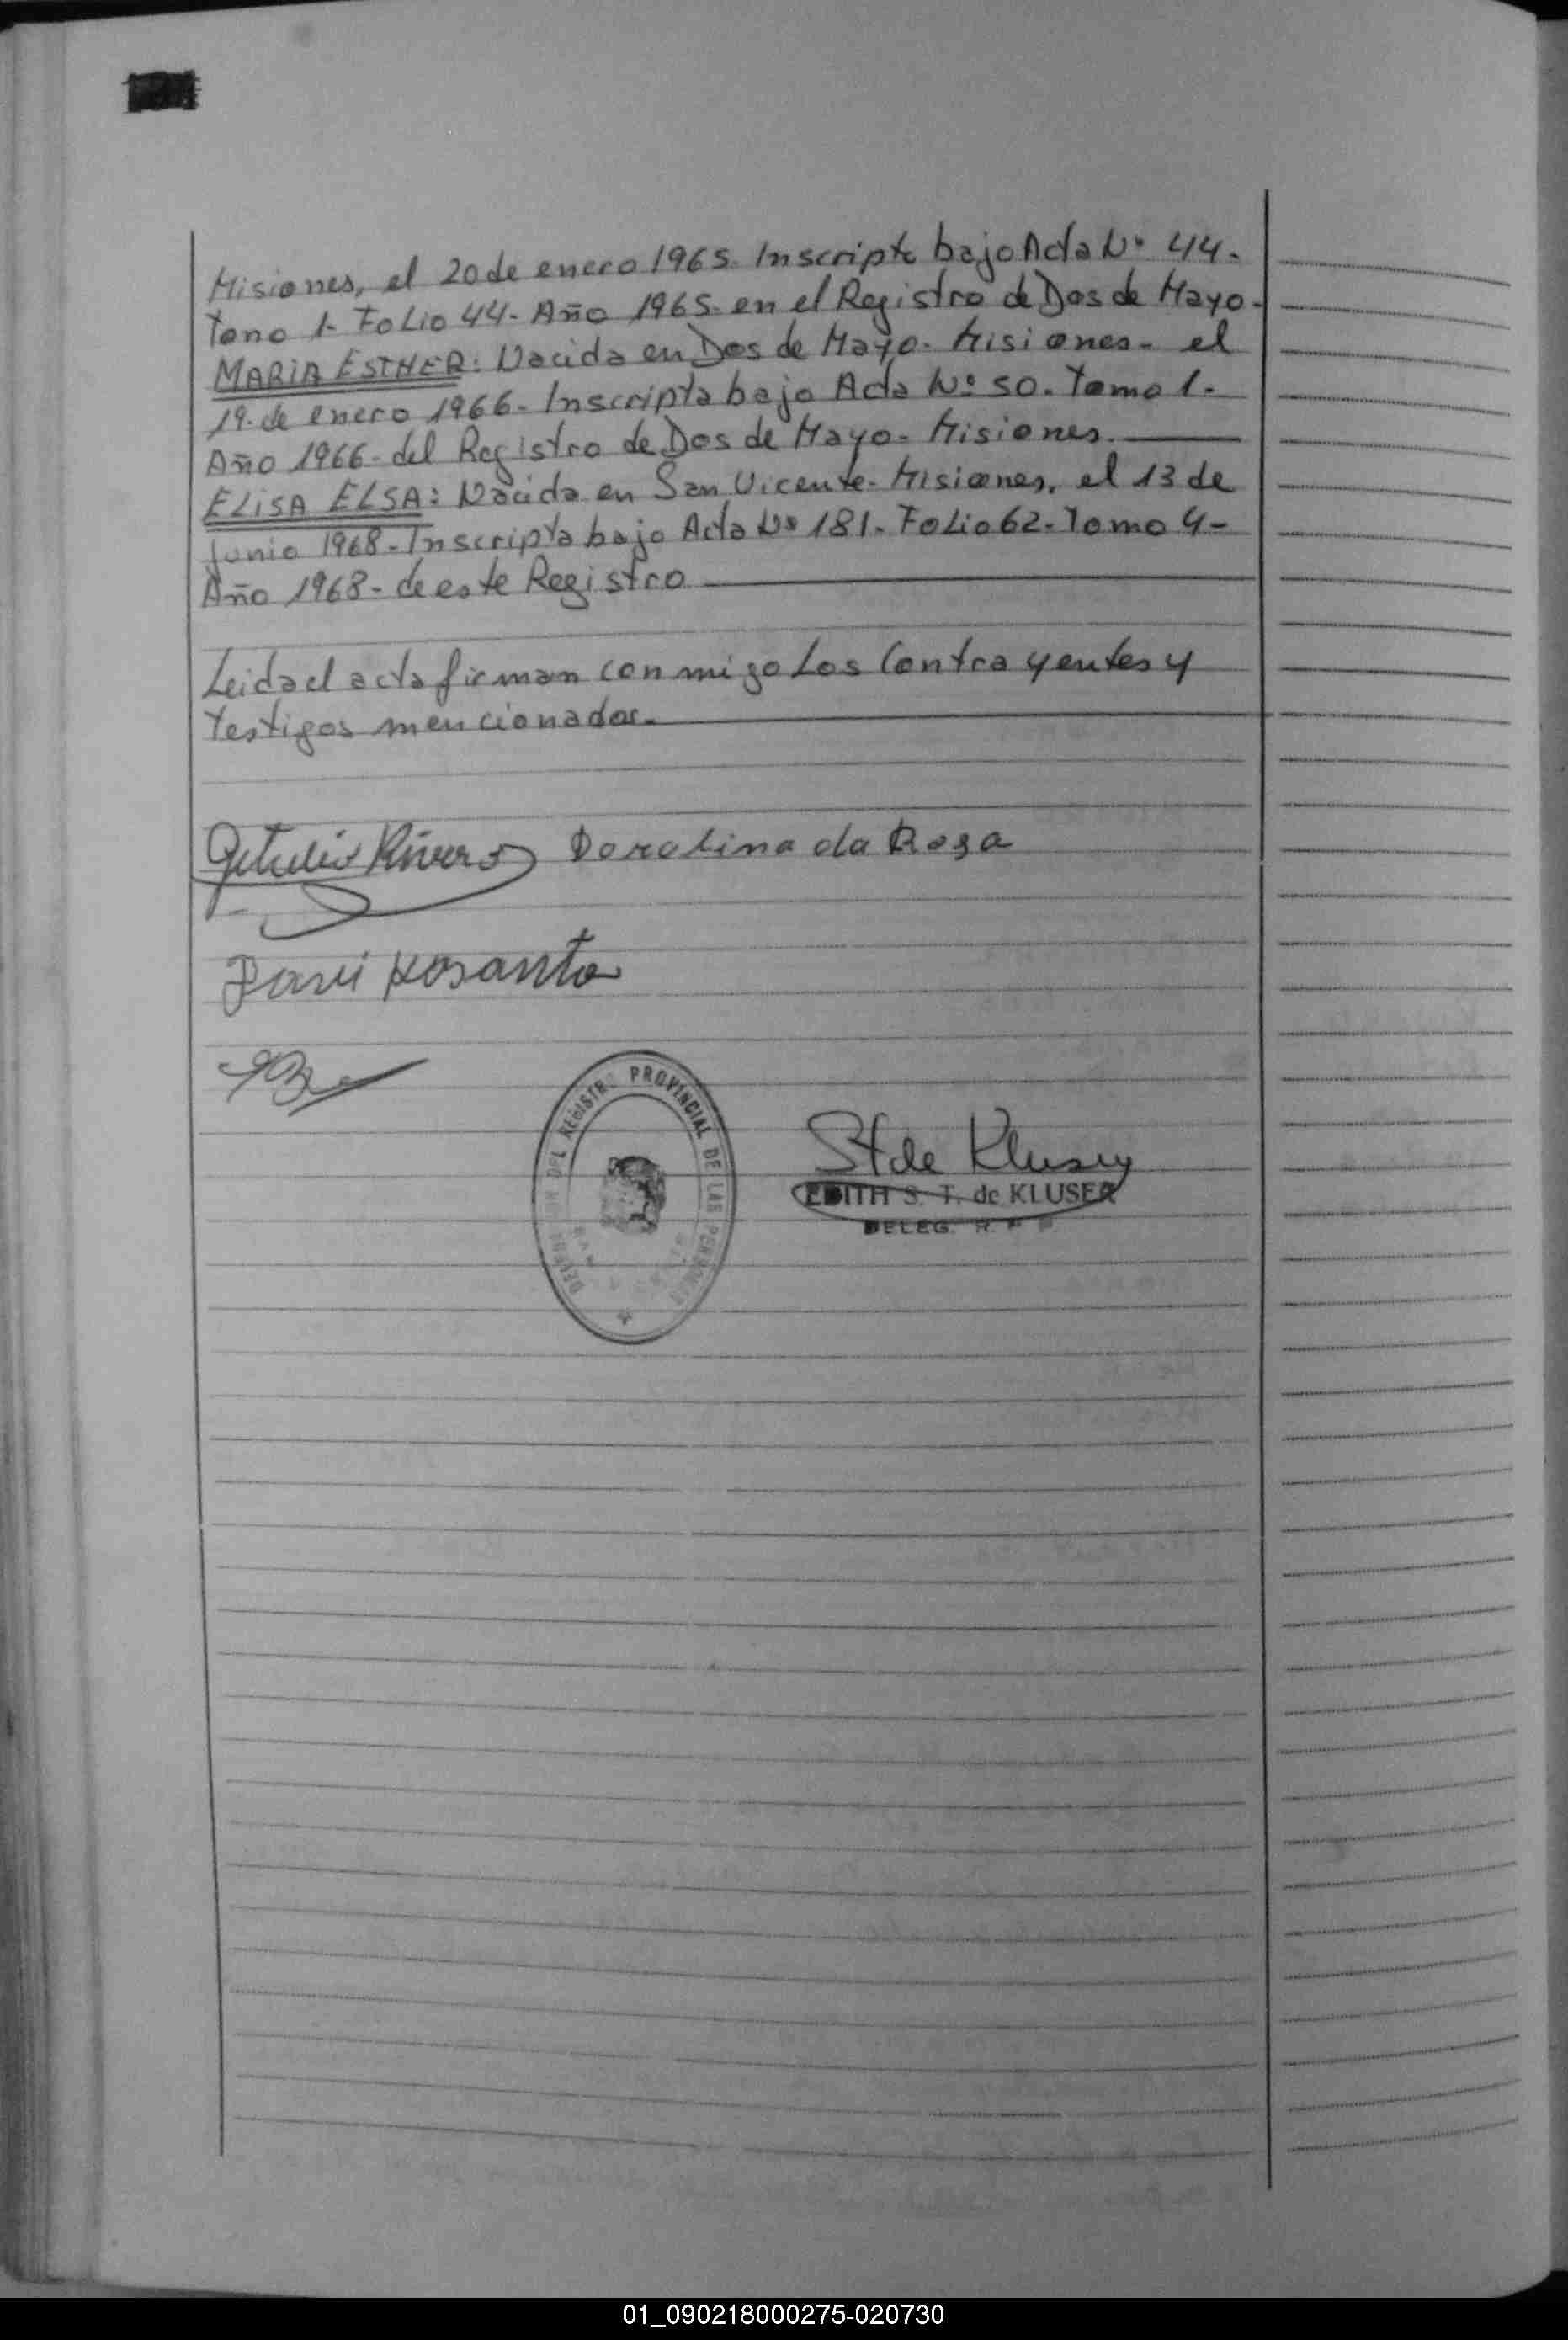 Misiones, el 20 de enero 1965. Inscripto bajo Acta Nº 44.
Tomo 1- Folio 44- Año 1965- en el Registro de Dos de Mayo-
MARIA ESTHER: Nacida en Dos de Mayo- Misiones- el
19 de enero 1966- Inscripta bajo Acta Nº 50. Tomo 1-
Año 1966- del Registro de Dos de Mayo- Misiones.
ELISA ELSA: Nacida en San Vicente- Misiones, el 13 de
Junio 1968- Inscripta bajo Acta Nº 181- Folio 62- Tomo 4-
Año 1968- de este Registro
Leida el acta firman conmigo Los Contrayentes y
testigos mencionados.
Getulio Rivero Doralina da Rosa
DEL REGISTRO PROVINCIAL DE LAS PERSONAS
St de Kluser
EDITH S. T. de KLUSER
DELEG. R. P. P.
01_090218000275-020730